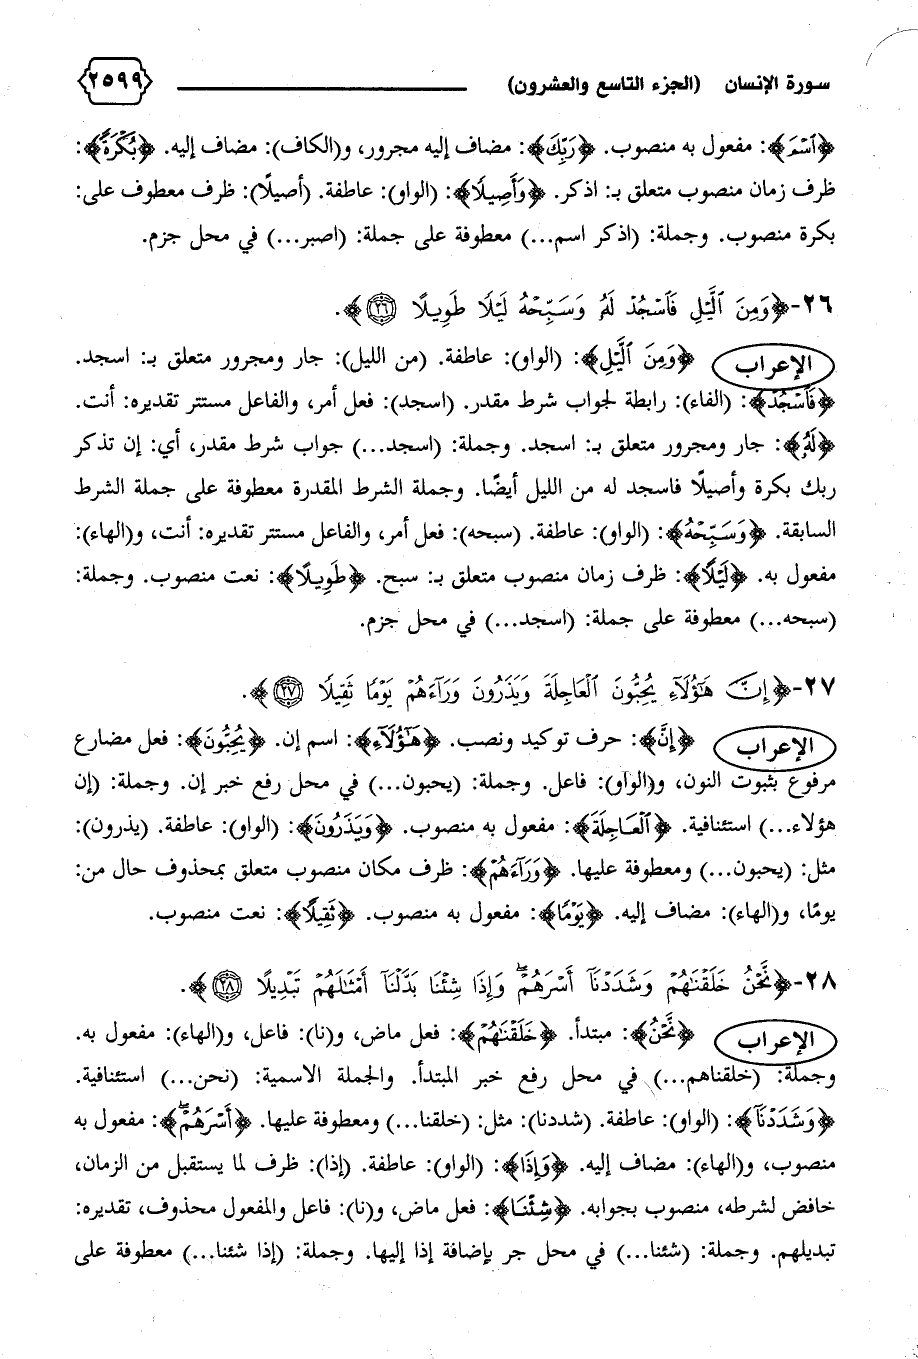 سورة الإنسان (الجزء التاسع والعشرون) ٢٥٩٩
﴿ٱسْمَ﴾: مفعول به منصوب. ﴿رَبِّكَ﴾: مضاف إليه مجرور، و(الكاف): مضاف إليه. ﴿بُكْرَةً﴾:
ظرف زمان منصوب متعلق بـ: اذكر. ﴿وَأَصِيلًا﴾: (الواو): عاطفة. (أصيلًا): ظرف معطوف على:
بكرة منصوب. وجملة: (اذكر اسم...) معطوفة على جملة: (اصبر...) في محل جزم.
٢٦-﴿وَمِنَ ٱلَّيْلِ فَٱسْجُدْ لَهُۥ وَسَبِّحْهُ لَيْلًا طَوِيلًا ۝٢٦﴾.
الإعراب ﴿وَمِنَ ٱلَّيْلِ﴾: (الواو): عاطفة. (من الليل): جار ومجرور متعلق بـ: اسجد.
﴿فَٱسْجُدْ﴾: (الفاء): رابطة لجواب شرط مقدر. (اسجد): فعل أمر، والفاعل مستتر تقديره: أنت.
﴿لَهُۥ﴾: جار ومجرور متعلق بـ: اسجد. وجملة: (اسجد...) جواب شرط مقدر، أي: إن تذكر
ربك بكرة وأصيلًا فاسجد له من الليل أيضًا. وجملة الشرط المقدرة معطوفة على جملة الشرط
السابقة. ﴿وَسَبِّحْهُ﴾: (الواو): عاطفة. (سبحه): فعل أمر، والفاعل مستتر تقديره: أنت، و(الهاء):
مفعول به. ﴿لَيْلًا﴾: ظرف زمان منصوب متعلق بـ: سبح. ﴿طَوِيلًا﴾: نعت منصوب. وجملة:
(سبحه...) معطوفة على جملة: (اسجد...) في محل جزم.
٢٧-﴿إِنَّ هَٰٓؤُلَآءِ يُحِبُّونَ ٱلْعَاجِلَةَ وَيَذَرُونَ وَرَآءَهُمْ يَوْمًا ثَقِيلًا ۝٢٧﴾.
الإعراب ﴿إِنَّ﴾: حرف توكيد ونصب. ﴿هَٰٓؤُلَآءِ﴾: اسم إن. ﴿يُحِبُّونَ﴾: فعل مضارع
مرفوع بثبوت النون، و(الواو): فاعل. وجملة: (يحبون...) في محل رفع خبر إن. وجملة: (إن
هؤلاء...) استئنافية. ﴿ٱلْعَاجِلَةَ﴾: مفعول به منصوب. ﴿وَيَذَرُونَ﴾: (الواو): عاطفة. (يذرون):
مثل: (يحبون...) ومعطوفة عليها. ﴿وَرَآءَهُمْ﴾: ظرف مكان منصوب متعلق بمحذوف حال من:
يومًا، و(الهاء): مضاف إليه. ﴿يَوْمًا﴾: مفعول به منصوب. ﴿ثَقِيلًا﴾: نعت منصوب.
٢٨-﴿نَّحْنُ خَلَقْنَٰهُمْ وَشَدَدْنَآ أَسْرَهُمْ ۖ وَإِذَا شِئْنَا بَدَّلْنَآ أَمْثَٰلَهُمْ تَبْدِيلًا ۝٢٨﴾.
الإعراب ﴿نَّحْنُ﴾: مبتدأ. ﴿خَلَقْنَٰهُمْ﴾: فعل ماض، و(نا): فاعل، و(الهاء): مفعول به.
وجملة: (خلقناهم...) في محل رفع خبر المبتدأ. والجملة الاسمية: (نحن...) استئنافية.
﴿وَشَدَدْنَآ﴾: (الواو): عاطفة. (شددنا): مثل: (خلقنا...) ومعطوفة عليها. ﴿أَسْرَهُمْ ۖ﴾: مفعول به
منصوب، و(الهاء): مضاف إليه. ﴿وَإِذَا﴾: (الواو): عاطفة. (إذا): ظرف لما يستقبل من الزمان،
خافض لشرطه، منصوب بجوابه. ﴿شِئْنَا﴾: فعل ماض، و(نا): فاعل والمفعول محذوف، تقديره:
تبديلهم. وجملة: (شئنا...) في محل جر بإضافة إذا إليها. وجملة: (إذا شئنا...) معطوفة على